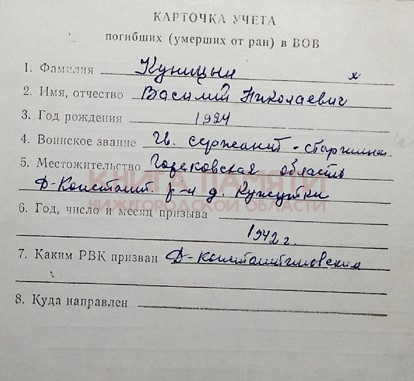 КАРТОЧКА УЧЕТА
погибших (умерших от ран) в ВОВ
1. Фамилия Куницын х
2. Имя, отчество Василий Николаевич
3. Год рождения 1924
4. Воинское звание гв. сержант - старшина
5. Местожительство Горьковская область
Д-Констант. р-н д. Кужутки
КНИГА ПАМЯТИ
НИЖЕГОРОДСКОЙ ОБЛАСТИ
6. Год, число и месяц призыва
1942 г.
7. Каким РВК призван Д-Константиновским
8. Куда направлен